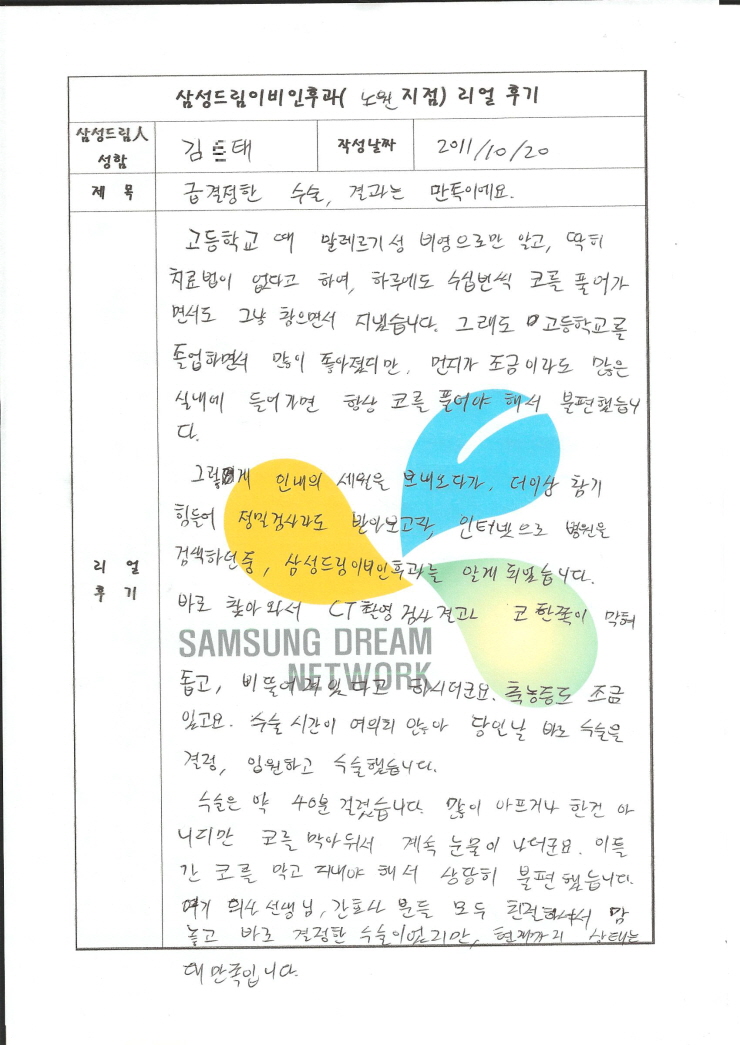 삼성드림이비인후과( 노원 지점) 리얼 후기
삼성드림人 성함
김 태
작성날짜
2011/10/20
제 목
급결정한 수술, 결과는 만족이에요.
리 얼 후 기
고등학교 때 알레르기성 비염으로만 알고, 딱히
치료법이 없다고 하여, 하루에도 수십번씩 코를 풀어가
면서도 그냥 참으면서 지냈습니다. 그래도 고등학교를
졸업하면서 많이 좋아졌지만, 먼지가 조금이라도 많은
실내에 들어가면 항상 코를 풀어야 해서 불편했습니
다.
그렇게 인내의 세월을 보내오다가, 더이상 참기
힘들어 정밀검사라도 받아보고자, 인터넷으로 병원을
검색하던중, 삼성드림이비인후과를 알게 되었습니다.
바로 찾아 와서 CT촬영 검사결과 코 한쪽이 막혀
SAMSUNG DREAM
NETWORK
돕고, 비뚤어져있다고 하시더군요. 축농증도 조금
있고요. 수술 시간이 여의치 않아 당일날 바로 수술을
결정, 입원하고 수술했습니다.
수술은 약 40분 걸렸습니다. 많이 아프거나 한건 아
니지만 코를 막아둬서 계속 눈물이 나더군요. 이틀
간 코를 막고 지내야 해서 상당히 불편했습니다.
여기 의사선생님, 간호사 분들 모두 친절하셔서 맘
놓고 바로 결정한 수술이었지만, 현재까지 상태는
대만족입니다.